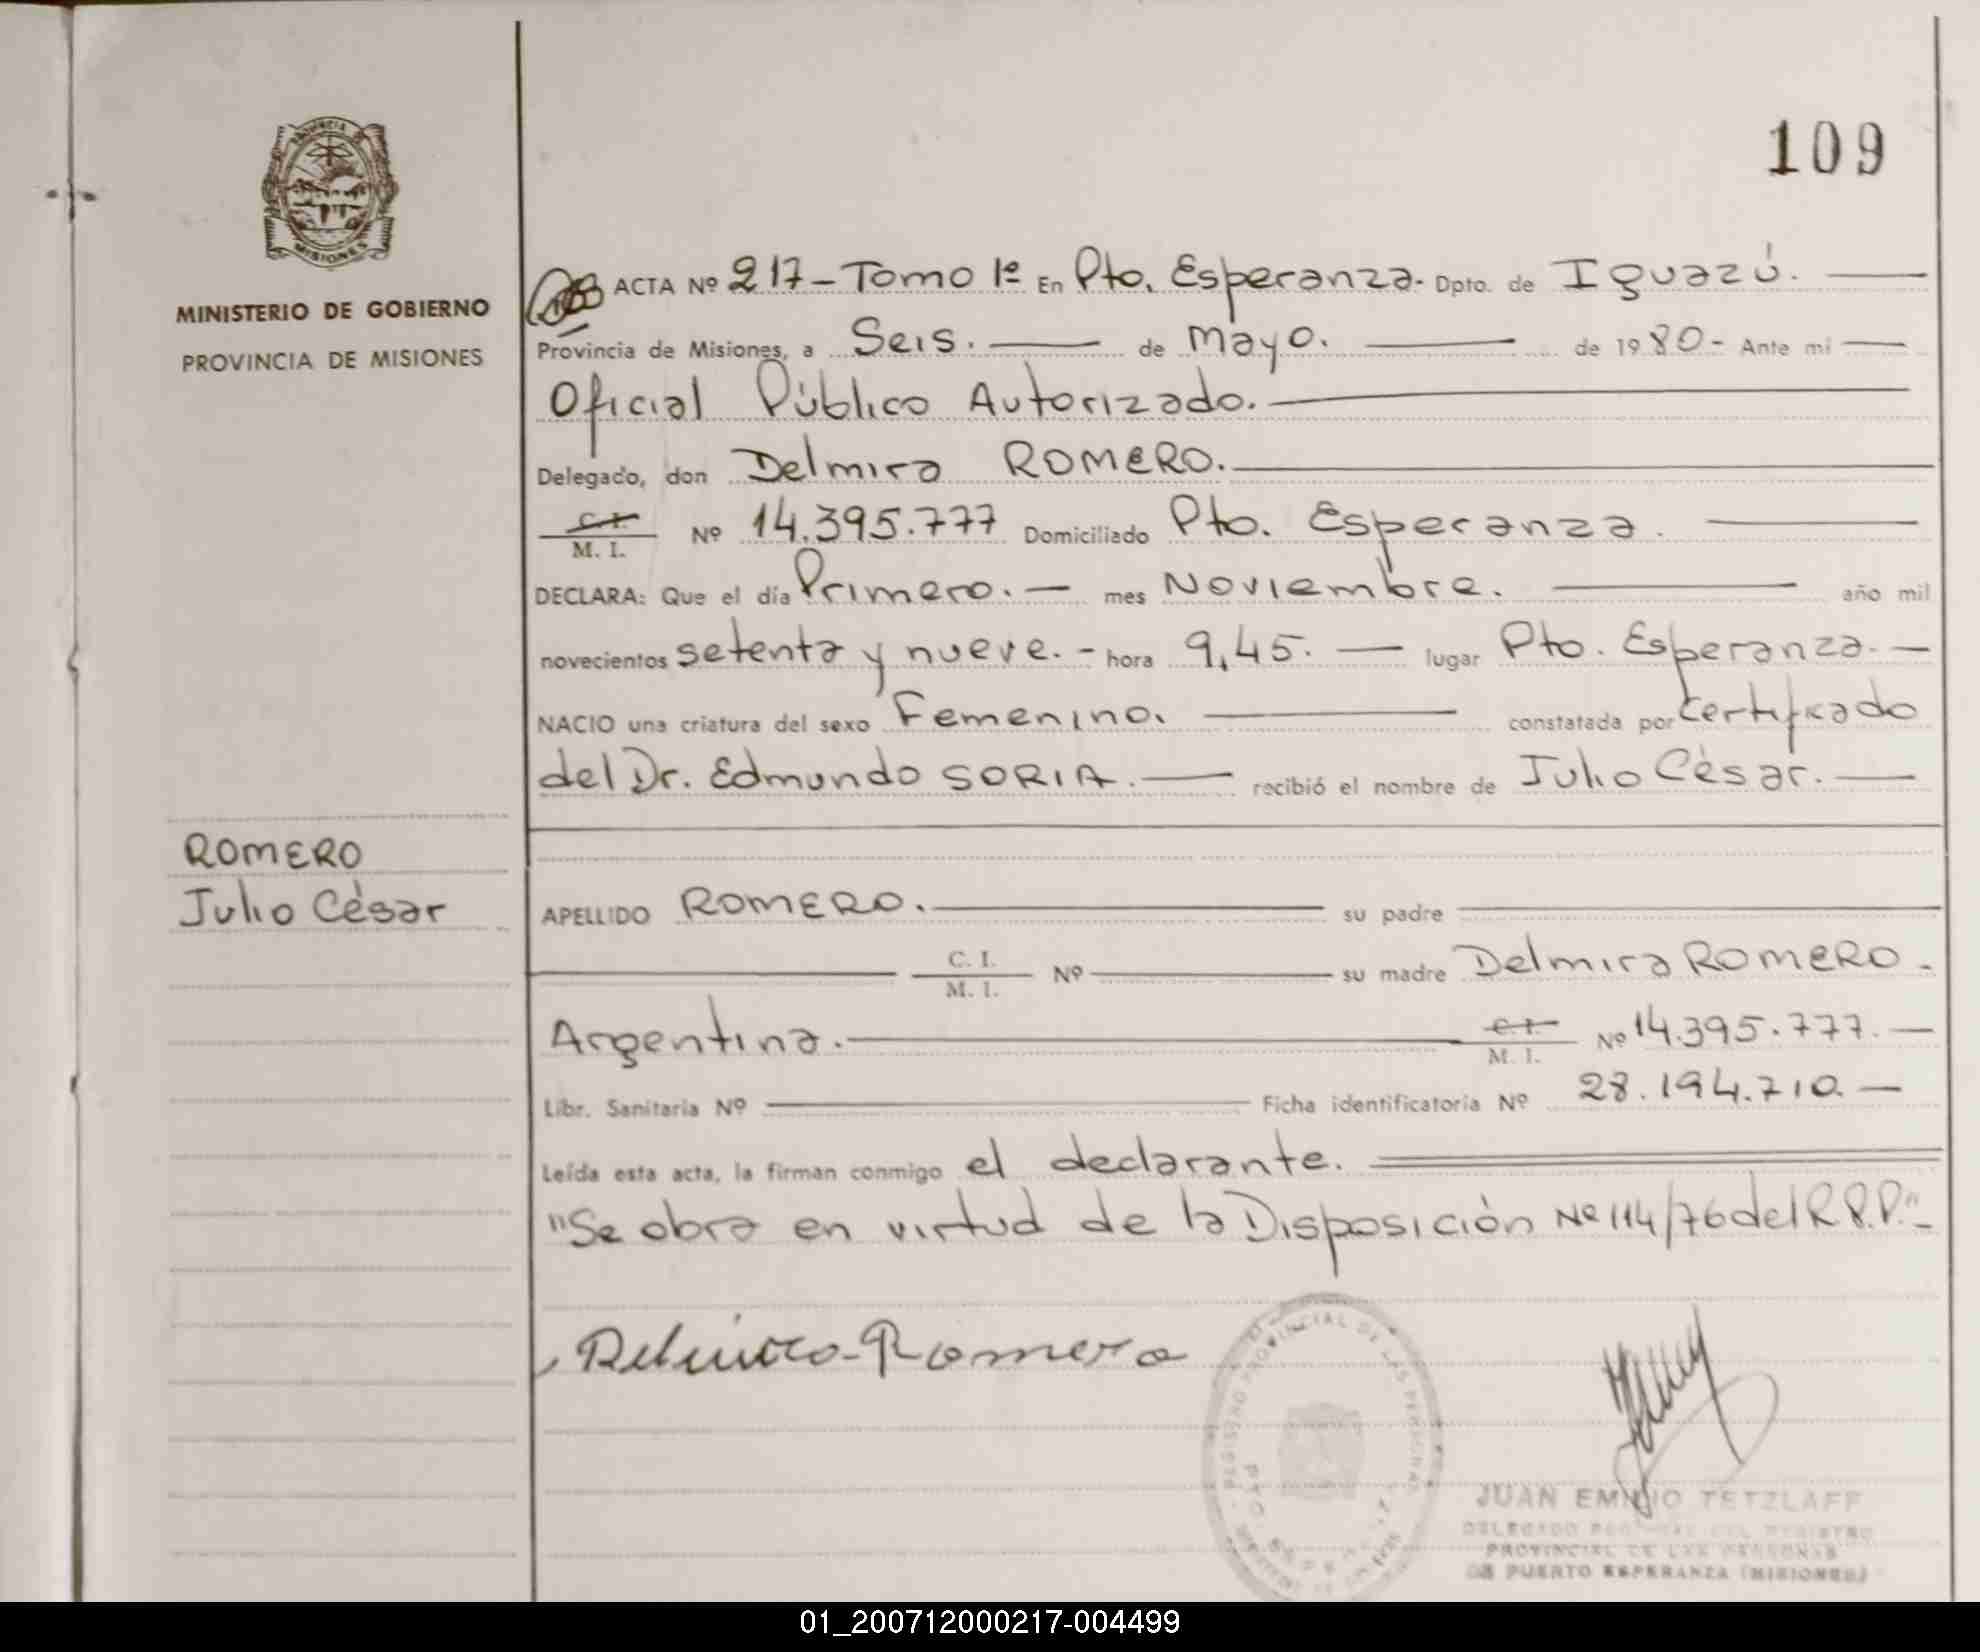 109
PROVINCIA DE
MISIONES
MINISTERIO DE GOBIERNO
PROVINCIA DE MISIONES
ACTA Nº 217 - Tomo 1º En Pto. Esperanza. Dpto. de Iguazú.
Provincia de Misiones, a Seis. de Mayo. de 1980- Ante mi
Oficial Público Autorizado.
Delegado, don Delmira ROMERO.
C. I.
M. I. Nº 14.395.777 Domiciliado Pto. Esperanza.
DECLARA: Que el día Primero. mes Noviembre. año mil
novecientos setenta y nueve. - hora 9,45. lugar Pto. Esperanza.
NACIO una criatura del sexo Femenino. constatada por certificado
del Dr. Edmundo SORIA. recibió el nombre de Julio César.
ROMERO
Julio César
APELLIDO ROMERO. su padre
C. I.
M. I. Nº su madre Delmira ROMERO.
Argentina. C. I.
M. I. Nº 14.395.777.
Libr. Sanitaria Nº Ficha identificatoria Nº 28.194.710.
Leída esta acta, la firman conmigo el declarante.
"Se obra en virtud de la Disposición Nº 114/76 del R.P.P."
Delmira Romero
REGISTRO PROVINCIAL DE LAS PERSONAS
JUAN EMILIO TETZLAFF
DELEGADO DEL REGISTRO
PROVINCIAL DE LAS PERSONAS
DE PUERTO ESPERANZA (MISIONES)
01_200712000217-004499